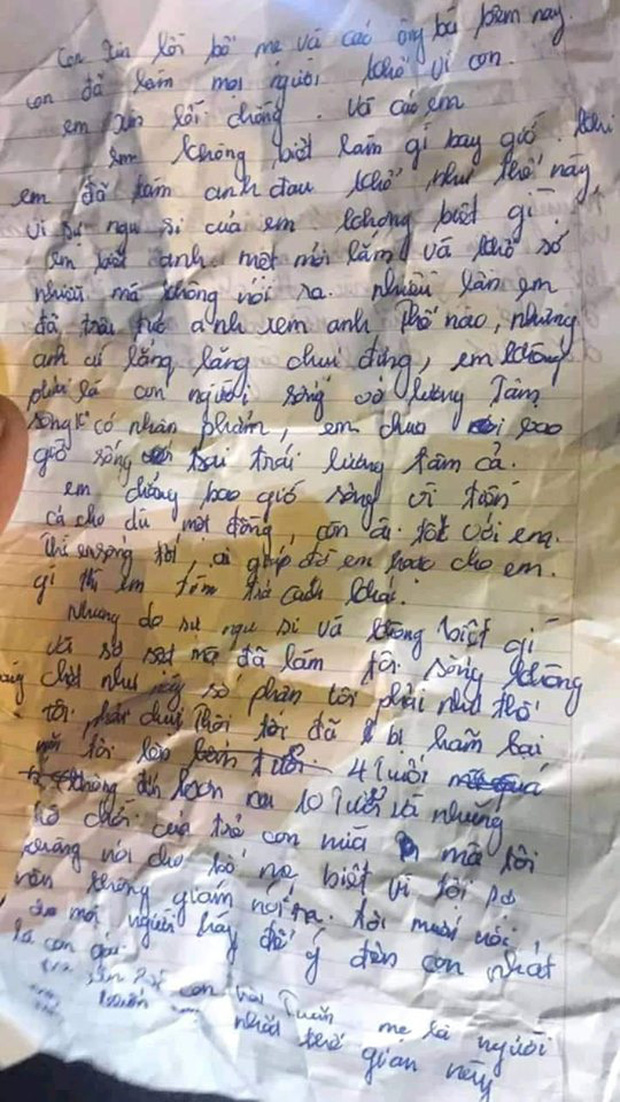 con xin lỗi bố mẹ và các ông bà bêm nay.
con đã làm mọi người khổ vì con.
em xin lỗi chồng. và các em
em không biết làm gì bay giờ. khi
em đã làm anh đau khổ như thế này,
vì sự ngu si của em không biết gì.
em biết anh mệt mỏi lắm và khổ sở
nhiều mà không nói ra. nhiều lần em
đã trêu tức anh xem anh thế nào, nhưng
anh cứ lẳng lặng chịu đựng, em không
phải là con người sống vô lương tâm
sống k có nhân phẩm, em chưa bao
giờ sống trái lương tâm cả.
em chẳng bao giờ sống vì tiền
cả cho dù một đồng, còn ai tốt với em.
thì em sống tốt, ai giúp đỡ em hoặc cho em.
gì thì em tìm trả cách khác.
Nhưng do sự ngu si và không biết gì
và sợ sệt mà đã làm tôi sống không
chết như này số phận tôi phải như thế
tôi phải chịu thôi tôi đã bị hãm hại
tôi lên 4 Tuổi
không đến hơn 10 Tuổi và những
trò chơi của trẻ con nữa mà tôi
không nói cho bố mẹ biết vì tôi sợ
vẫn không giám nói ra. tôi muốn nói
mọi người hãy để ý đến con nhất
là con gái.
xin lỗi con hai Tuần mẹ là người
nhất thế gian này